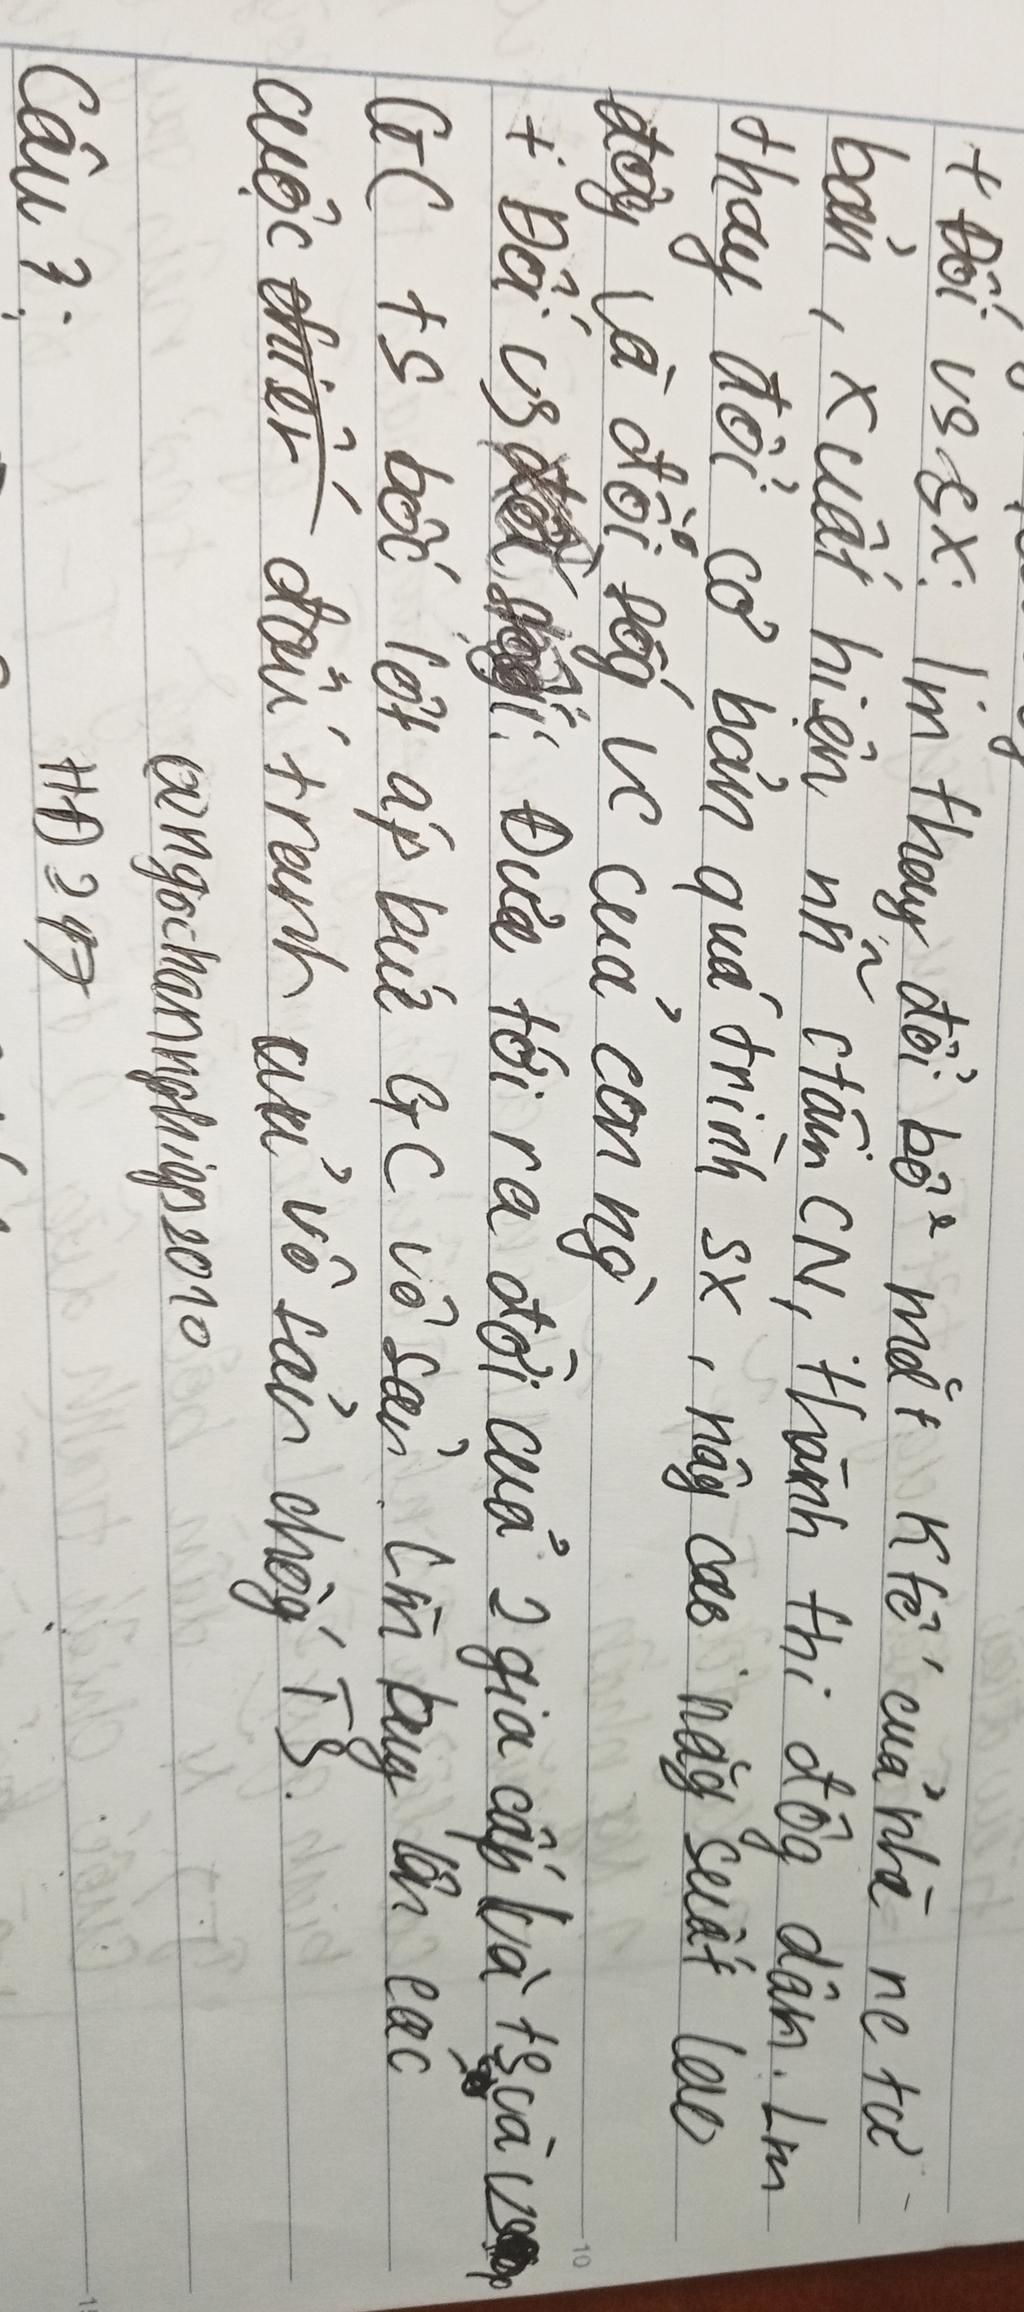 + Đối vs sx: lm thay đổi bộ² mặt Ktế của nhà nc tư
bản, xuất hiện nh~ ctâm CN, thành thị đôg dân. Lm
thay đổi cơ bản quá trình sx, nâg cao năg suất lao
đôg và đời sôg vc của con ng`
+ Đối vs Đưa tới ra đời của 2 giai cấp là ts và vs
GC ts bóc lột áp bức GC vô sản. Lm bug lên các
cuộc đấu tranh của vô sản chốg TS.
angochannghiqs2010
Câu 3:
HĐ 247